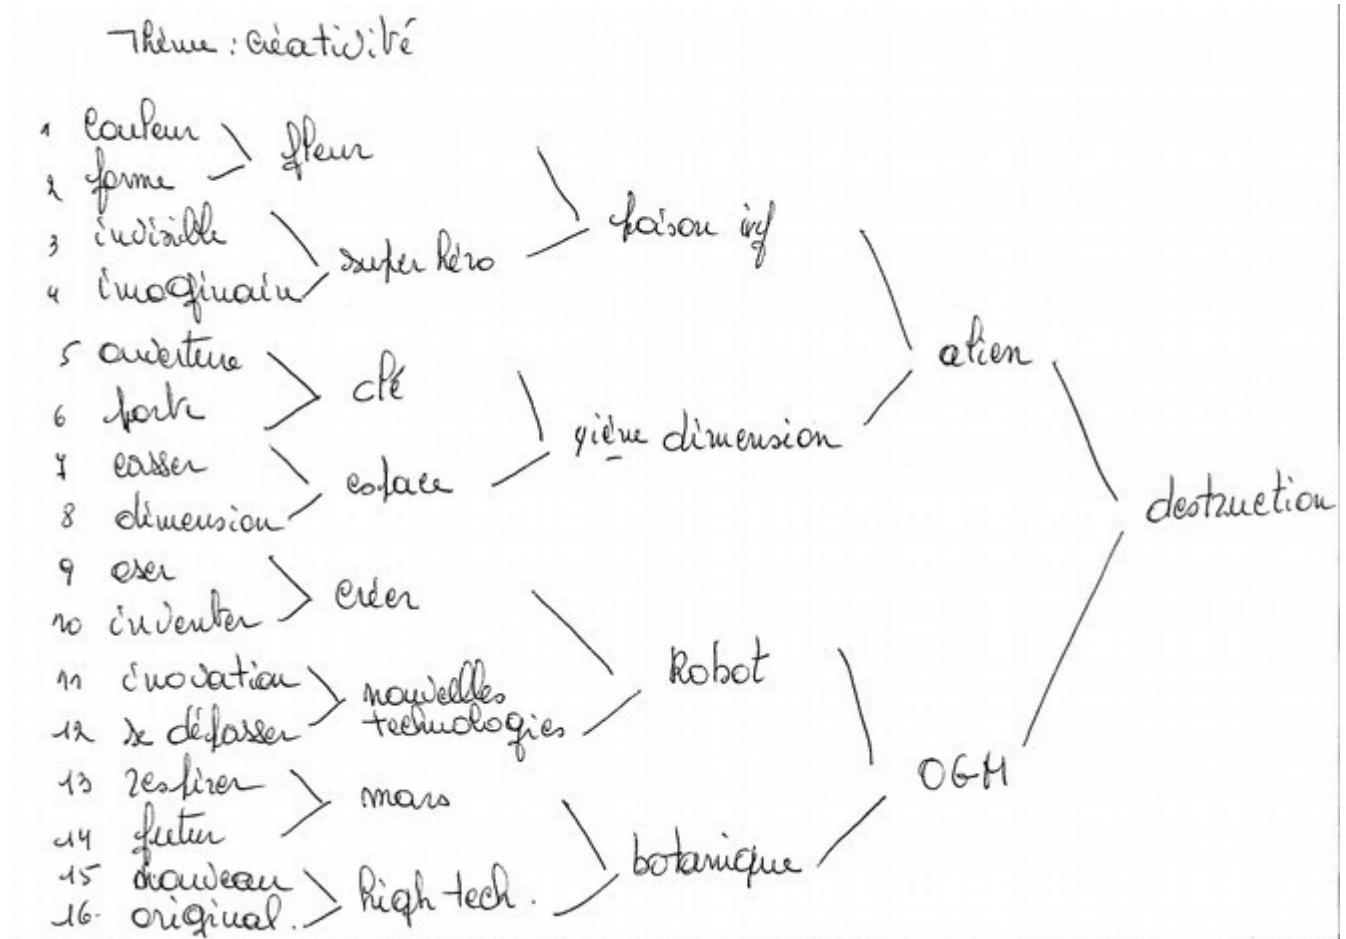 Thème : Créativité
1 Couleur
2 forme
3 invisible
4 imaginain
5 ouverture
6 porte
7 casser
8 dimension
9 oser
10 inventer
11 inovation
12 se dépasser
13 respirer
14 futur
15 nouveau
16. original.
fleur
super héro
clé
espace
créer
nouvelles
technologies
mars
high tech.
poison ivy
4ième dimension
Robot
botanique
alien
OGM
destruction